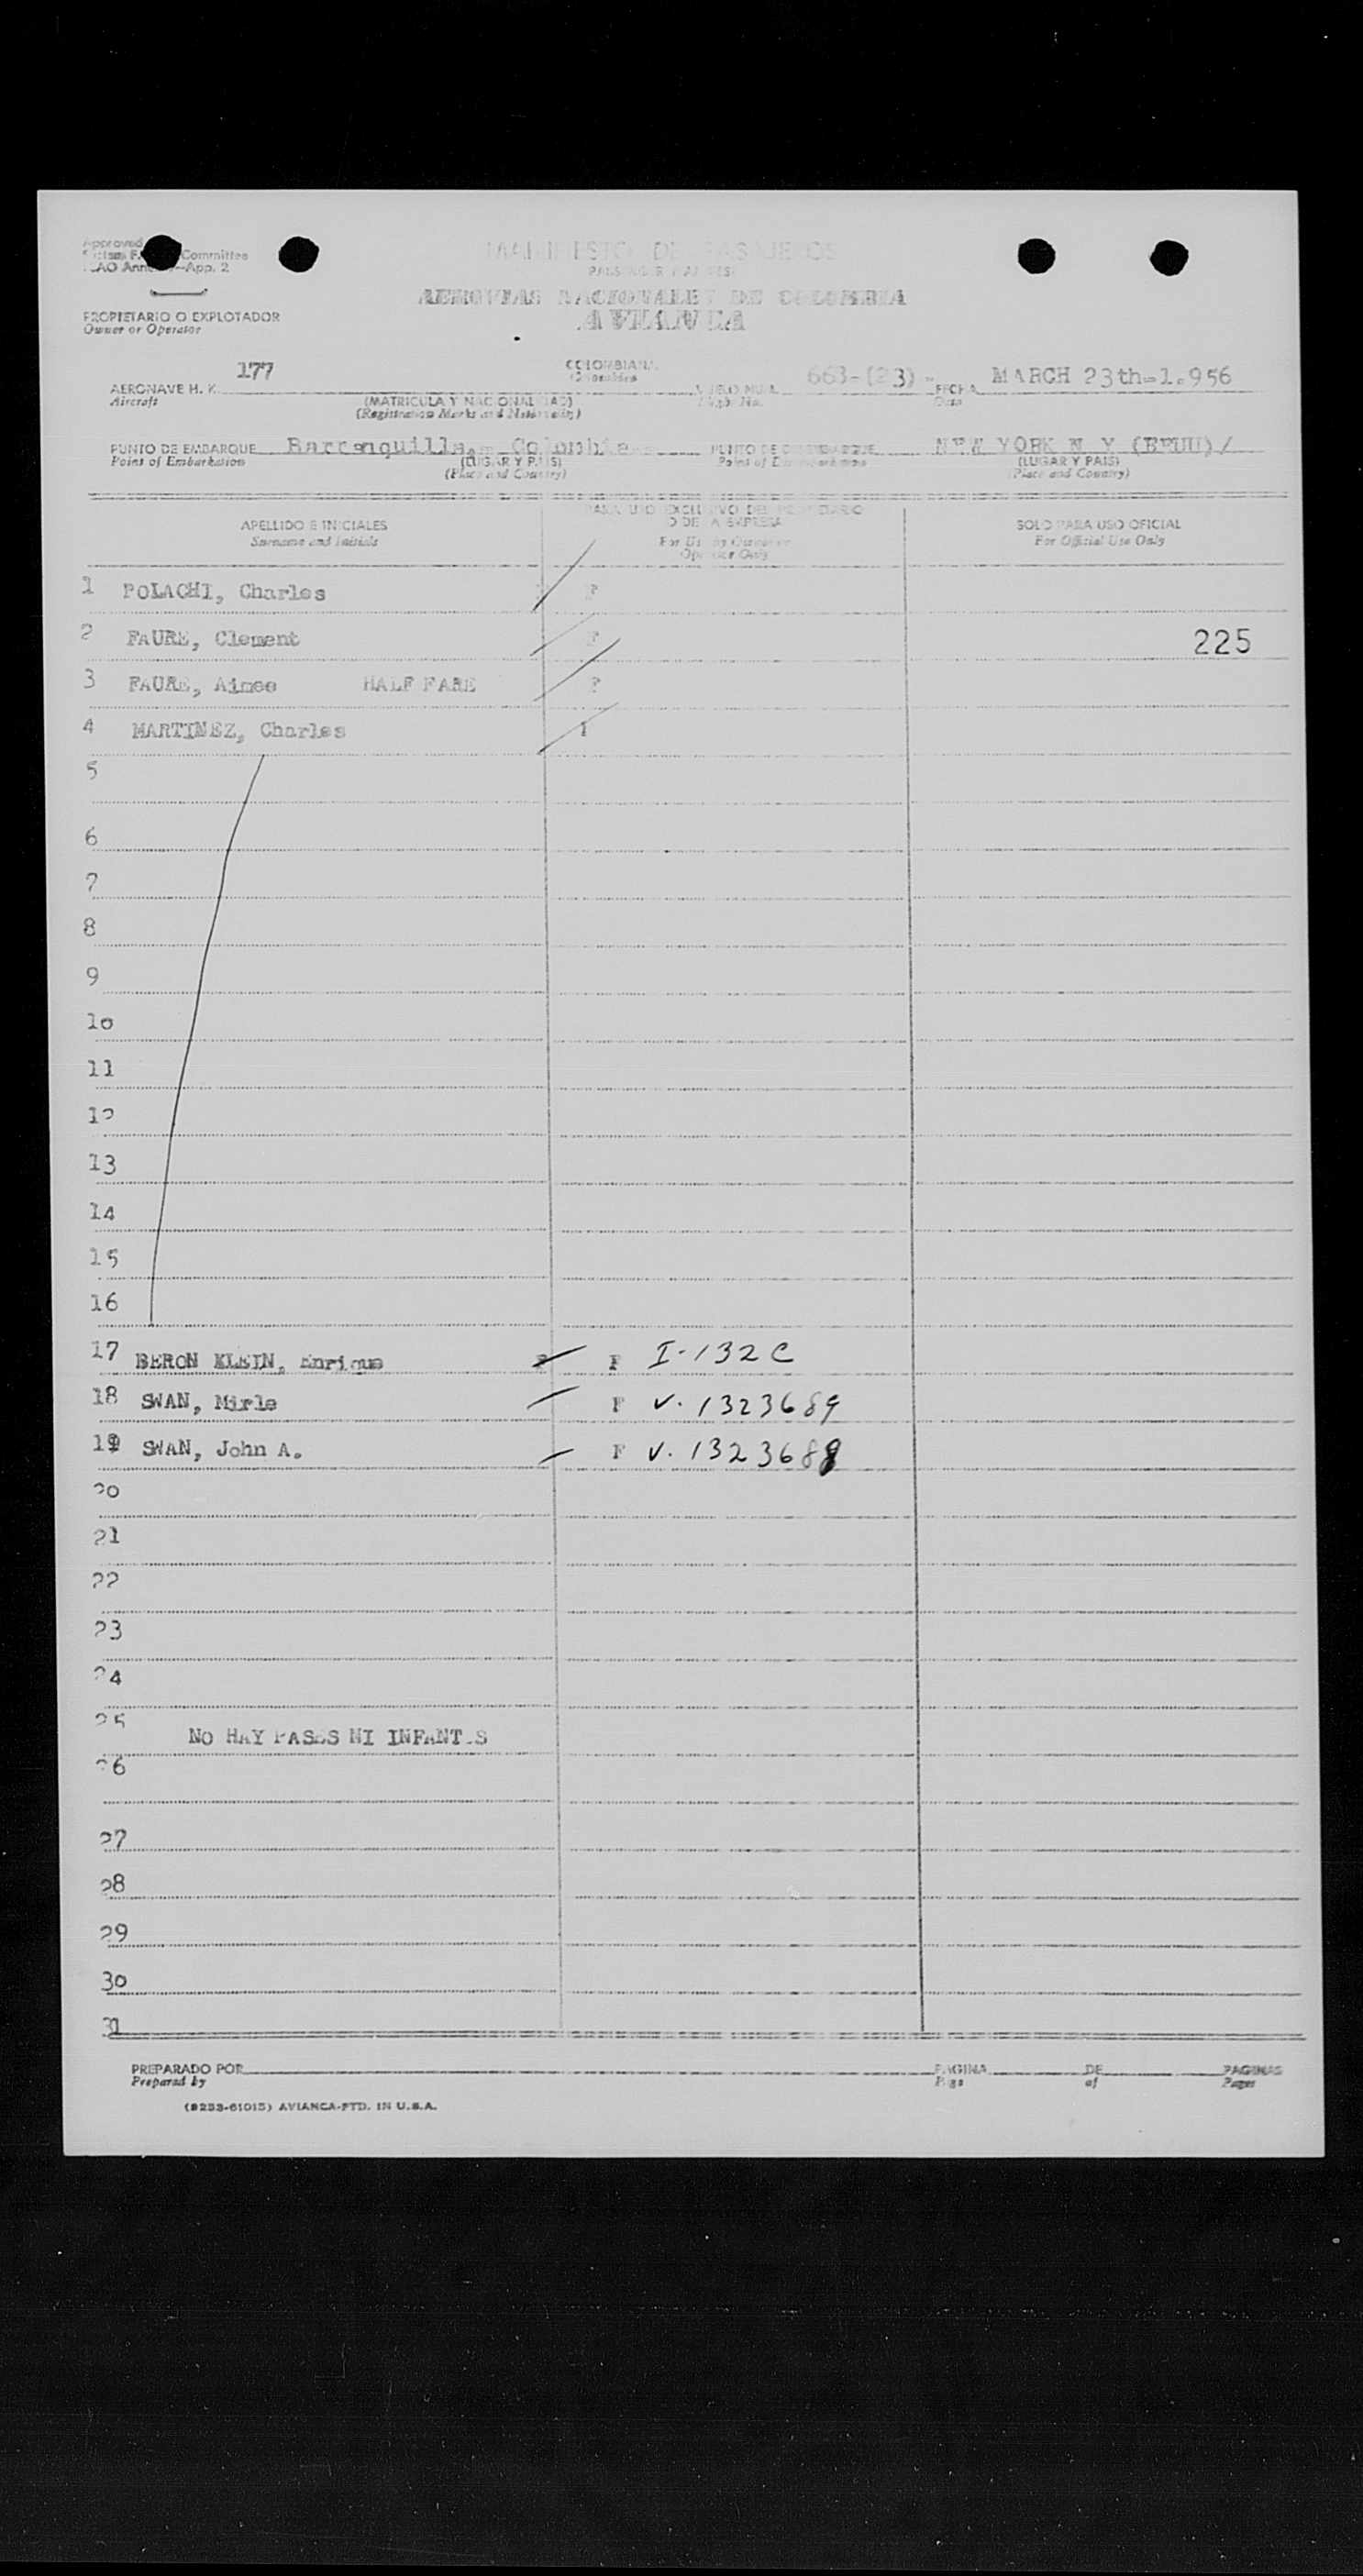 Approved
Committee
ICAO Annex —App. 2
MANIFIESTO DE PASAJEROS
AEROVIAS NACIONALES DE COLOMBIA
AVIANCA
PROPIETARIO O EXPLOTADOR
Owner or Operator
AERONAVE H. K. 177 COLOMBIANA 663-(23)- FECHA MARCH 23th-1.956
Colombian
Aircraft (MATRICULA Y NACIONALIDAD) Date
(Registration Marks and Nationality)
PUNTO DE EMBARQUE Barranquilla,- Colombia PUNTO DE DESEMBARQUE NEW YORK N Y (EEUU)/
Point of Embarkation (LUGAR Y PAIS) Point of Disembarkation (LUGAR Y PAIS)
(Place and Country) (Place and Country)
APELLIDO E INICIALES PARA USO EXCLUSIVO DEL PROPIETARIO SOLO PARA USO OFICIAL
O DE LA EMPRESA
Surname and Initials For Use by Owner or For Official Use Only
Operator Only
1 POLACHI, Charles F
2 FAURE, Clement F 225
3 FAURE, Aimee HALF FARE F
4 MARTINEZ, Charles
5
6
7
8
9
10
11
12
13
14
15
16
17 BERON KLEIN, Enrique F I-132C
18 SWAN, Mirle F V. 1323689
19 SWAN, John A. F V. 1323688
20
21
22
23
24
25
NO HAY PASES NI INFANTES
26
27
28
29
30
31
PREPARADO POR PAGINA DE PAGINAS
Prepared by Page of Pages
(8253-61015) AVIANCA-PTD. IN U.S.A.